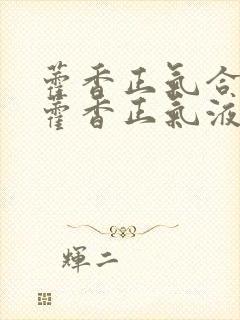 藿香正氣合
藿香正氣液
輝二